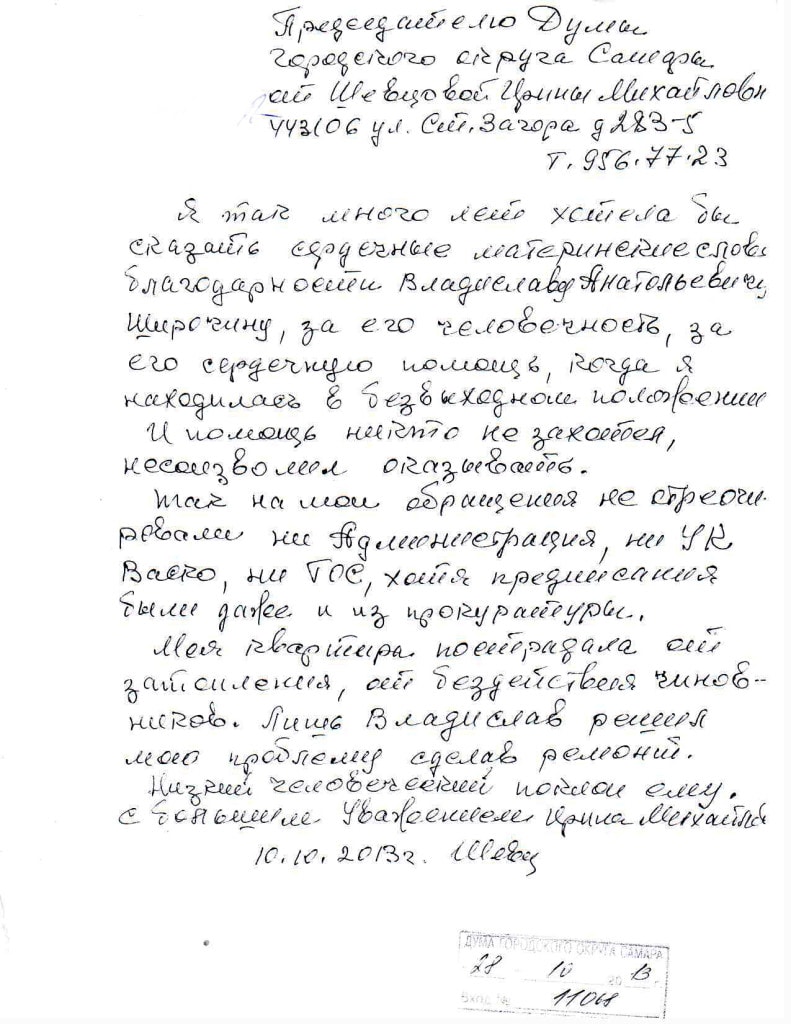 Председателю Думы
городского округа Самары
от Шевцовой Ирины Михайловн
443106 ул. Ст. Загора д 283-5
т. 956.77.23
Я так много лет хотела бы
сказать сердечные материнские слова
благодарности Владиславу Анатольевичу
Широчину, за его человечность, за
его сердечную помощь, когда я
находилась в безвыходном положении
И помощь никто не захотел,
несоизволил оказывать.
Так на мои обращения не
ни Администрация, ни УК
Васко, ни ТОС, хотя предписания
были даже и из прокуратуры.
Моя квартира пострадала от
затопления, от бездействия чинов-
ников. Лишь Владислав решил
мою проблему сделав ремонт.
Низкий человеческий поклон ему.
с большим Уважением Ирина Михайло
10.10.2013г. Шевц
ДУМА ГОРОДСКОГО ОКРУГА САМАРА
28 10 20 13 г.
Вход № 11068